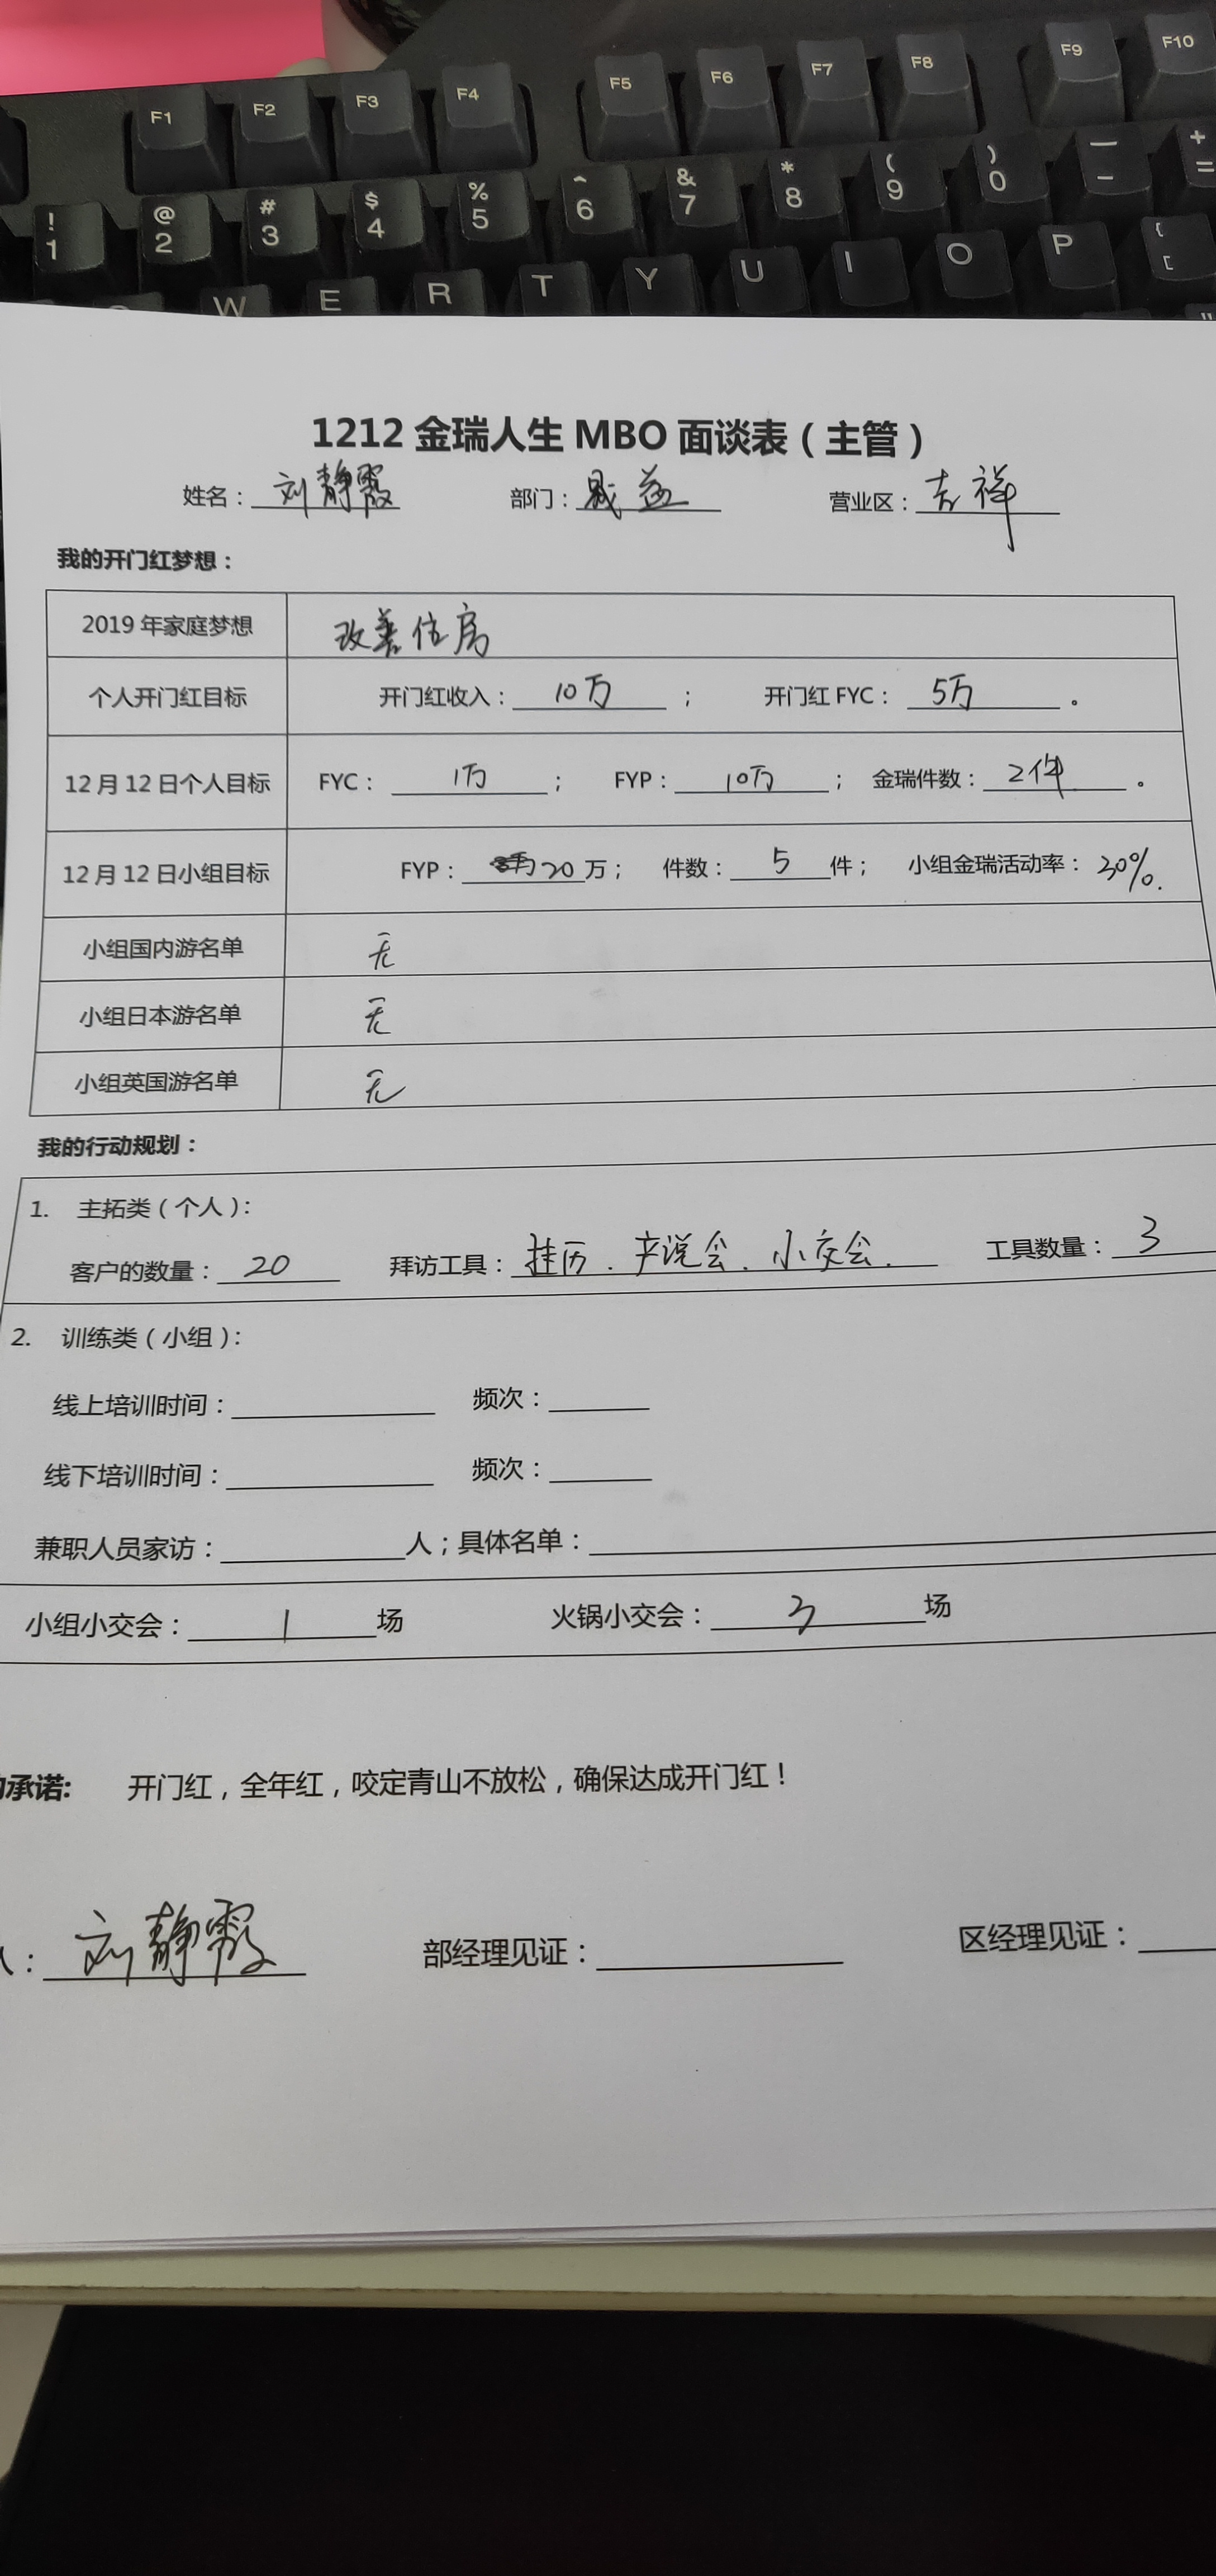 F1 F2 F3 F4 F5 F6 F7 F8 F9 F10
! 1 @ 2 # 3 $ 4 % 5 ^ 6 & 7 * 8 ( 9 ) 0 — - + =
W E R T Y U I O P { [
1212金瑞人生MBO面谈表（主管）
姓名：刘静霞 部门：晟益 营业区：吉祥
我的开门红梦想：
2019年家庭梦想 改善住房
个人开门红目标 开门红收入：10万； 开门红FYC：5万。
12月12日个人目标 FYC：1万； FYP：10万； 金瑞件数：2件。
12月12日小组目标 FYP：20万； 件数：5件； 小组金瑞活动率：30%.
小组国内游名单 无
小组日本游名单 无
小组英国游名单 无
我的行动规划：
1. 主拓类（个人）：
客户的数量：20 拜访工具：挂历.产说会.小交会. 工具数量：3
2. 训练类（小组）：
线上培训时间： 频次：
线下培训时间： 频次：
兼职人员家访： 人；具体名单：
小组小交会：1场 火锅小交会：3场
承诺: 开门红，全年红，咬定青山不放松，确保达成开门红！
人：刘静霞 部经理见证： 区经理见证：